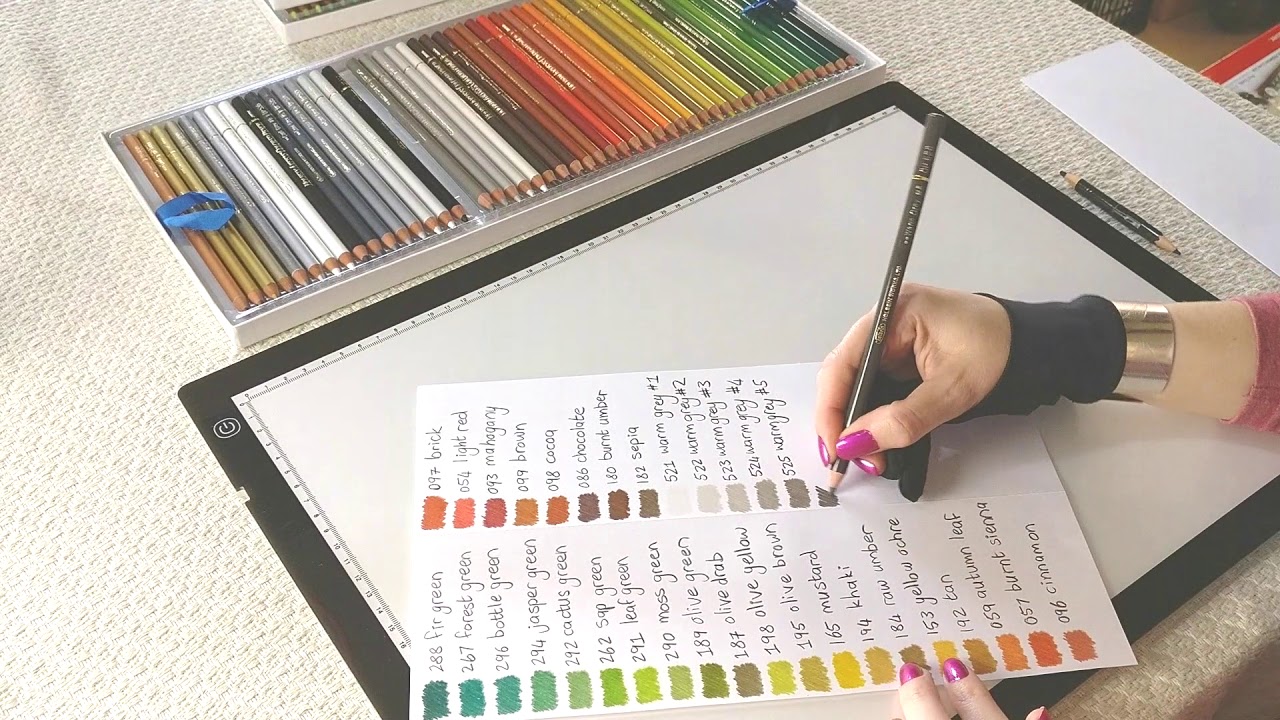 097 brick
054 light red
093 mahogany
099 brown
098 cocoa
086 chocolate
180 burnt umber
182 sepia
521 warm grey #1
522 warm grey #2
523 warm grey #3
524 warm grey #4
525 warm grey #5
288 fir green
267 forest green
296 bottle green
294 jasper green
292 cactus green
262 sap green
291 leaf green
290 moss green
189 olive green
187 olive drab
198 olive yellow
195 olive brown
165 mustard
194 khaki
184 raw umber
153 yellow ochre
192 tan
059 autumn leaf
057 burnt sienna
096 cinnamon